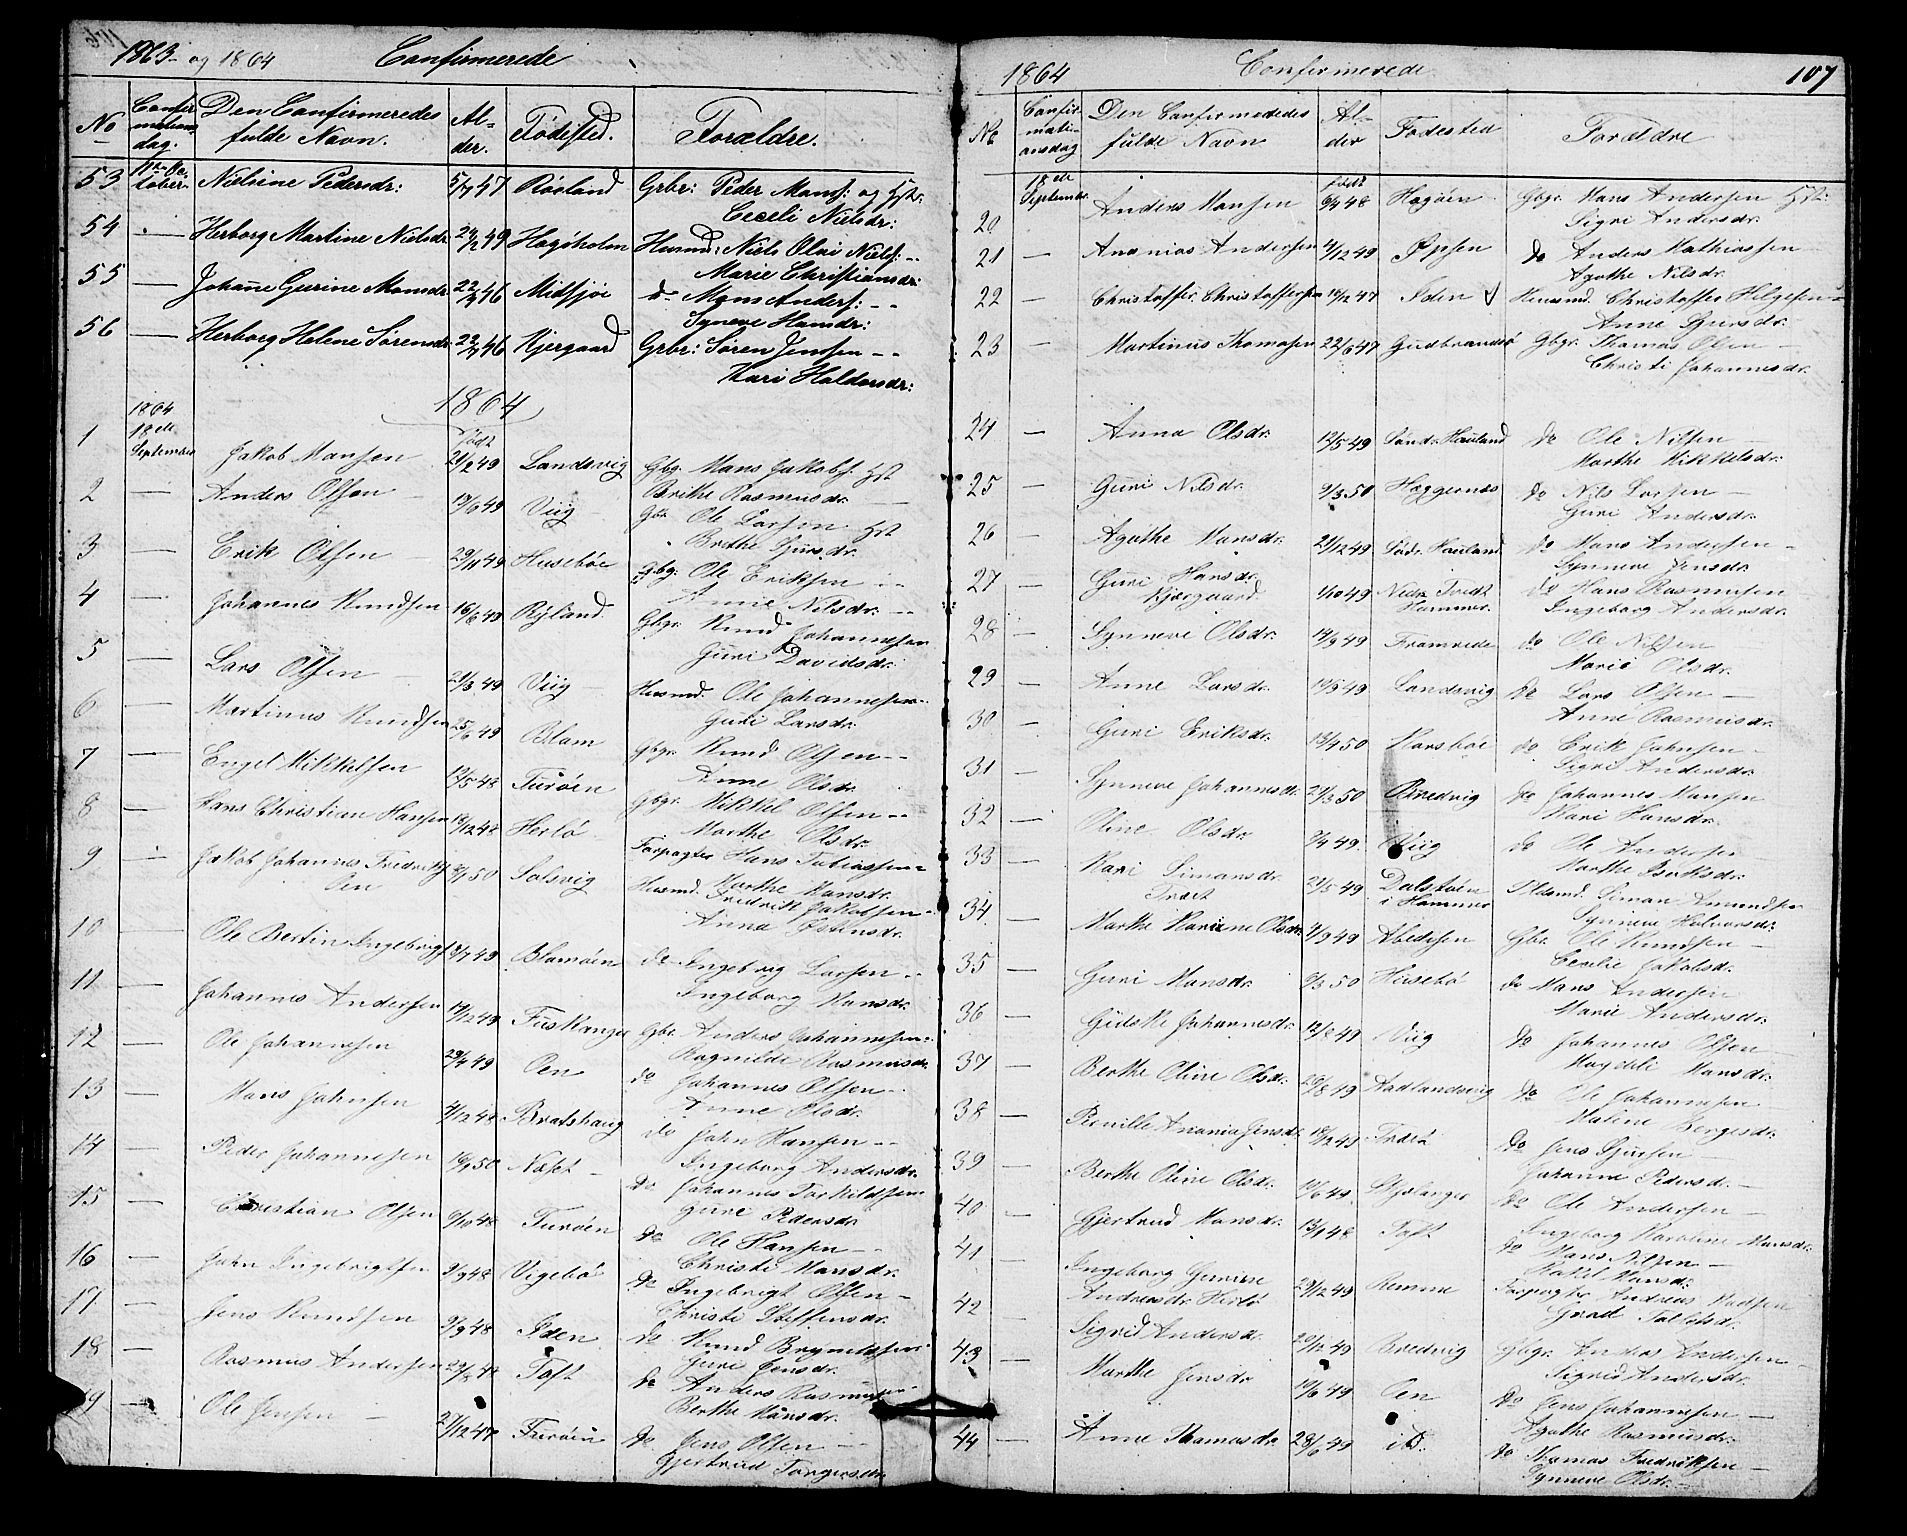 1863 og 1864 Confirmerede
No Confirmations dag. Den Confirmeredes fulde Navn. Alder. Födested. Forældre.
53 October Nielsine Pedersdr: 5/7 47 Rösland Grbr: Peder Mons: og Hst:
Ceceli Nielsdr:
54 — Herborg Martine Nielsdr 49 Hagöholm Husmd: Niels Olai Niels: --
Marie Christiansdr:
55 — Johane Gurine Monsdr 46 Midsjöe do Mons Anders: --
Syneve Hansdr:
56 — Herborg Helene Sörensdr 46 Kjergaard Grbr: Sören Jensen --
Kari Haldorsdr:
1864
1864
18de
født
1 September Jakob Mansen 49 Landsvig Gbgr. Mans Jakobs. Hst
Brithe Rasmusdr.
2 — Anders Olsen 49 Viig Gbr Ole Larsen Hst
Brethe Sjursdr.
3 — Erik Olsen 29/11 49 Huseböe Gbgr. Ole Eriksen
Anne Nilsdr.
4 — Johannes Knudsen 49 Ryland Gbgr. Knud Johannesen
Guri Davidsdr.
5 — Lars Olsen 21/3 49 Viig Husmd. Ole Johannesen
Guri Larsdr.
6 — Martinus Knudsen 49 Blom Gbgr. Knud Olsen --
Anne Olsdr.
7 — Engel Mikkelsen 48 Turöen Gbgr. Mikkel Olsen --
Marthe Olsdr.
8 — Hans Christian Hansen 48 Herlö Forpagter Hans Tobiassen
Marthe Hansdr.
9 Jakob Johannes Fredriks 50 Solsvig Husmd. Fredrik Jakobsen
Oen Anna Östensdr.
10 Ole Bertin Ingebrigts 49 Blomöen do Ingebrig Larsen --
Ingeborg Mansdr.
11 — Johannes Andersen 49 Fuskanger Gbr. Anders Johannesen
Ragnilde Rasmusdr.
12 — Ole Johannesen 49 Oen do Johannes Olsen
Anne Olsdr.
13 — Mans Johnsen 48 Bratshaug do John Hansen --
Ingeborg Andersdr.
14 — Peder Johannesen 50 Næset do Johannes Torkildsen
Guri Pedersdr
15 — Christian Olsen 48 Turöen do Ole Hansen --
Christi Mansdr.
16 — John Ingebrigtsen 48 Vigebö do Ingebrigt Olsen -
Christi Steffensdr.
17 — Jens Knudsen 9/9 48 Iden do Knud
Guri Jensdr.
18 — Rasmus Andersen 48 Toft do Anders Rasmussen
Berthe Mansdr.
19 — Ole Jensen 47 Turöen do Jens Olsen --
Gjertrud Torgersdr.
1864 Confirmerede 107
No Confirmationsdag Den Confirmeredes fulde Navn Alder Fodested Forældre
18de født
20 September Anders Mansen 48 Hagöen Gbgr. Mans Andersen Hst:
Sigri Andersdr.
21 — Ananias Andersen 49 Öpsen do Anders Mathiassen
Agathe Nilsdr.
22 — Christoffer Christoffersen 47 Iden Husmd. Christoffer Helgesen
Anne Sjursdr.
23 — Martinus Thomasen 22/6 47 Gudbrandsö Gbgr. Thomas Olsen
Christi Johannesdr.
24 — Anna Olsdr. 12/5 49 Sönd. Hauland do Ole Nilsen
Marthe Mikkelsdr.
25 — Guri Nilsdr. 9/3 50 Hæggernæs do Nils Larsen
Guri Andersdr.
26 — Agathe Mansdr. 21/12 49 Södr. Hauland do Mans Andersen
Synneve Jensdr.
27 — Guri Hansdr. 1/10 49 Nedr. Tvedt do Hans Rasmusen
Kjærgaard Hammer. Ingeborg Andersdr.
28 — Synneve Olsdr. 49 Framrede do Ole Nilsen
Mari Olsdr.
29 — Anne Larsdr. 49 Landsvig do Lars Olsen
Anne Rasmusdr.
30 — Guri Eriksdr. 13/4 50 Karsböe do Erik Johnsen
Sigri Andersdr.
31 — Synneve Johannesdr. 50 Bredvig do Johannes Mansen
Kari Hansdr.
32 — Oline Olsdr. 49. Viig do Ole Andersen
Marthe Bertsdr.
33 — Kari Simonsdr. 49 Dalstöen Husmd. Simon Amundsen
Træet i Hammer Synneve Halvorsdr.
34 — Marthe Karine Olsdr. 49 Abedesen Gbr. Ole Knudsen
Cecelie Jakobsdr.
35 — Guri Mansdr. 50 Husebö do Mans Andersen
Marie Andersdr.
36 — Gudske Johannesdr. 12/8 49 Viig do Johannes Olsen
Magdeli Mansdr.
37 — Berthe Oline Olsdr. 49 Aadlandsvig do Ole Johannesen
Malene Børgesdr.
38 — Pernille Anania Jensdr. 49 do Jens Sjursen
Johanne Pedersdr. —
39 — Berthe Oline Olsdr. 49 do Ole Andersen
Ingeborg Karoline Mansdr.
40 — Gjertrud Mansdr. 48 Toft do Mans Nilsen
Mansdr.
41 — Ingeborg Gurine 29/12 49 Remme Forpagter Andreas Madsen
Andreasdr. Herlö
42 Sigrid Andersdr. 49 Bredvig Gbgr. Anders Andersen
Sigrid Andersdr.
43 — Marthe Jensdr 49 Oen do Jens Johannesen —
Agathe Rasmusdr.
44 — Anne Thomasdr 28/6 49 ibd. do Thomas Fredriksen —
Synneve Olsdr.